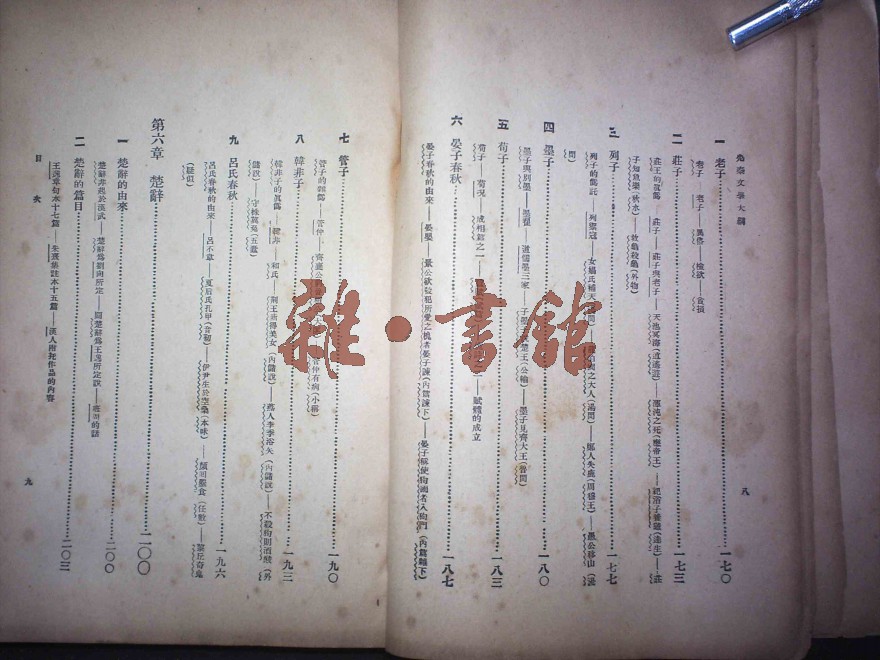 先秦文學大綱
八
一 老子……一七〇
老子——老子——異俗——儉欲——貪損
二 莊子……一七三
莊王的眞僞——莊子——莊子與老子——天地冥海(逍遙遊)——渾沌之死(應帝王)——紀渻子養雞(達生)——莊
子知魚樂(秋水)——神龜殺龜(外物)
三 列子……一七七
列子的僞託——列禦寇——女媧氏補天(湯問)——之大人(湯問)——鄭人失鹿(周穆王)——愚公移山(湯
問)
四 墨子……一八〇
墨子與別墨——墨翟——道儒墨三家——子墨楚王(公輸)——墨子見齊大王(魯問)
五 荀子……一八三
荀子——荀況——成相辭之一——之——賦體的成立
六 晏子春秋……一八七
晏子春秋的由來——晏嬰——景公欲殺犯所愛之槐者晏子諫(內篇諫下)——晏子使楚楚國者入狗門(內篇雜下)
七 管子……一九〇
管子的眞僞——管仲——齊桓公管仲有病(小稱)
八 韓非子……一九三
韓非子的眞僞——韓非——和氏——荊王所得美女(內儲說)——燕人李季浴矢(內儲說)——不殺狗則酒酸(外
儲說)——守株待兔(五蠹)
九 呂氏春秋……一九六
呂氏春秋的由來——呂不韋——夏后氏孔甲(音初)——伊尹生於空桑(本味)——顏回攫食(任數)——黎丘奇鬼
(疑似)
第六章 楚辭……二〇〇
一 楚辭的由來……二〇〇
楚辭非起於漢武——楚辭爲劉向所定——闢楚辭爲王逸所定說——的話
二 楚辭的篇目……二〇三
王逸章句本十七篇——朱熹集註本十五篇——漢人附托作品的內容
目 次
九
雜·書館